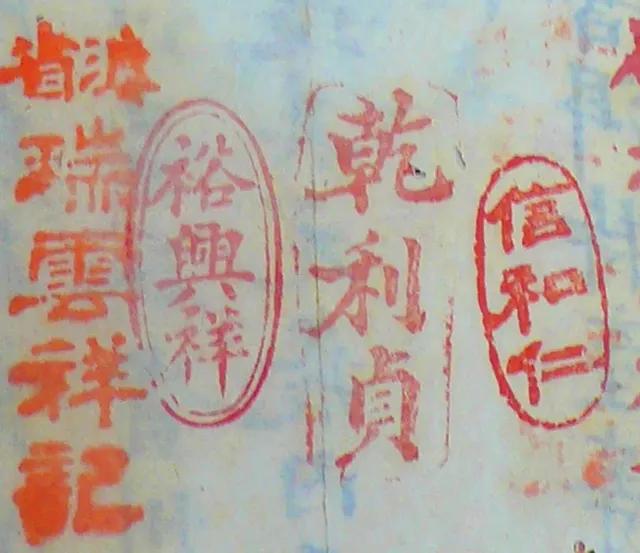 信和仁
乾利貞
裕興祥
滇省
瑞雲祥記